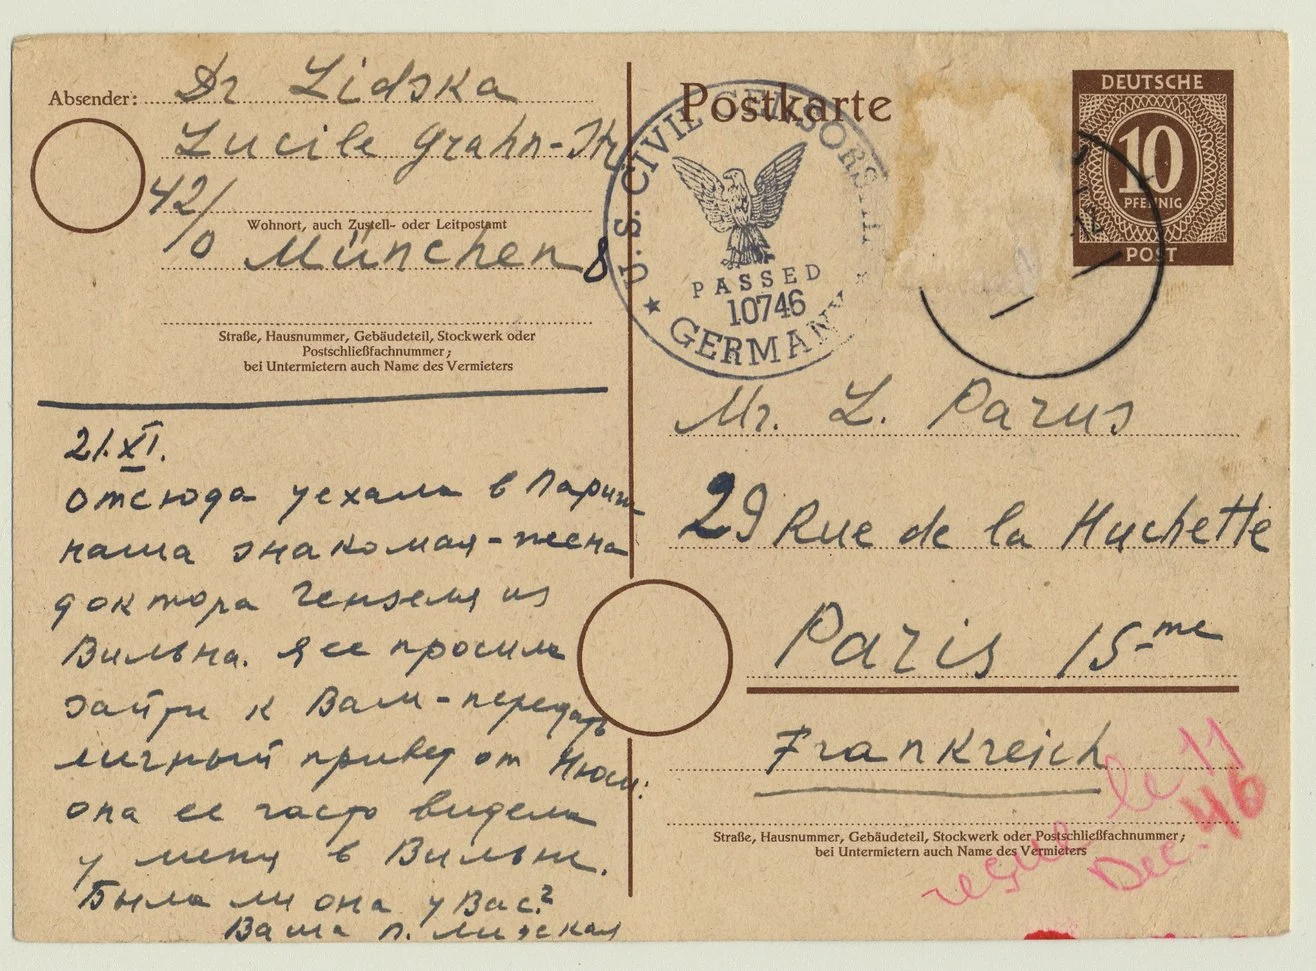 Absender: Dr Lidska
Lucile Grahn-Str
42/0
Wohnort, auch Zustell- oder Leitpostamt
München 8
Straße, Hausnummer, Gebäudeteil, Stockwerk oder
Postschließfachnummer;
bei Untermietern auch Name des Vermieters
21.XI.
Отсюда уехала в Париж
наша знакомая - жена
доктора Гензеля из
Вильна. Я ее просила
зайти к Вам - передать
личный привет от Нюси:
она ее часто видела
у меня в Вильне.
Была ли она у Вас?
Ваша Л. Лидская
Postkarte
U. S. CIVIL CENSORSHIP
PASSED
10746
GERMANY
DEUTSCHE
10
PFENNIG
POST
Mr. L. Parus
29 Rue de la Huchette
Paris 15-me
Frankreich
Straße, Hausnummer, Gebäudeteil, Stockwerk oder Postschließfachnummer;
bei Untermietern auch Name des Vermieters
reçue le 11
Dec. 46